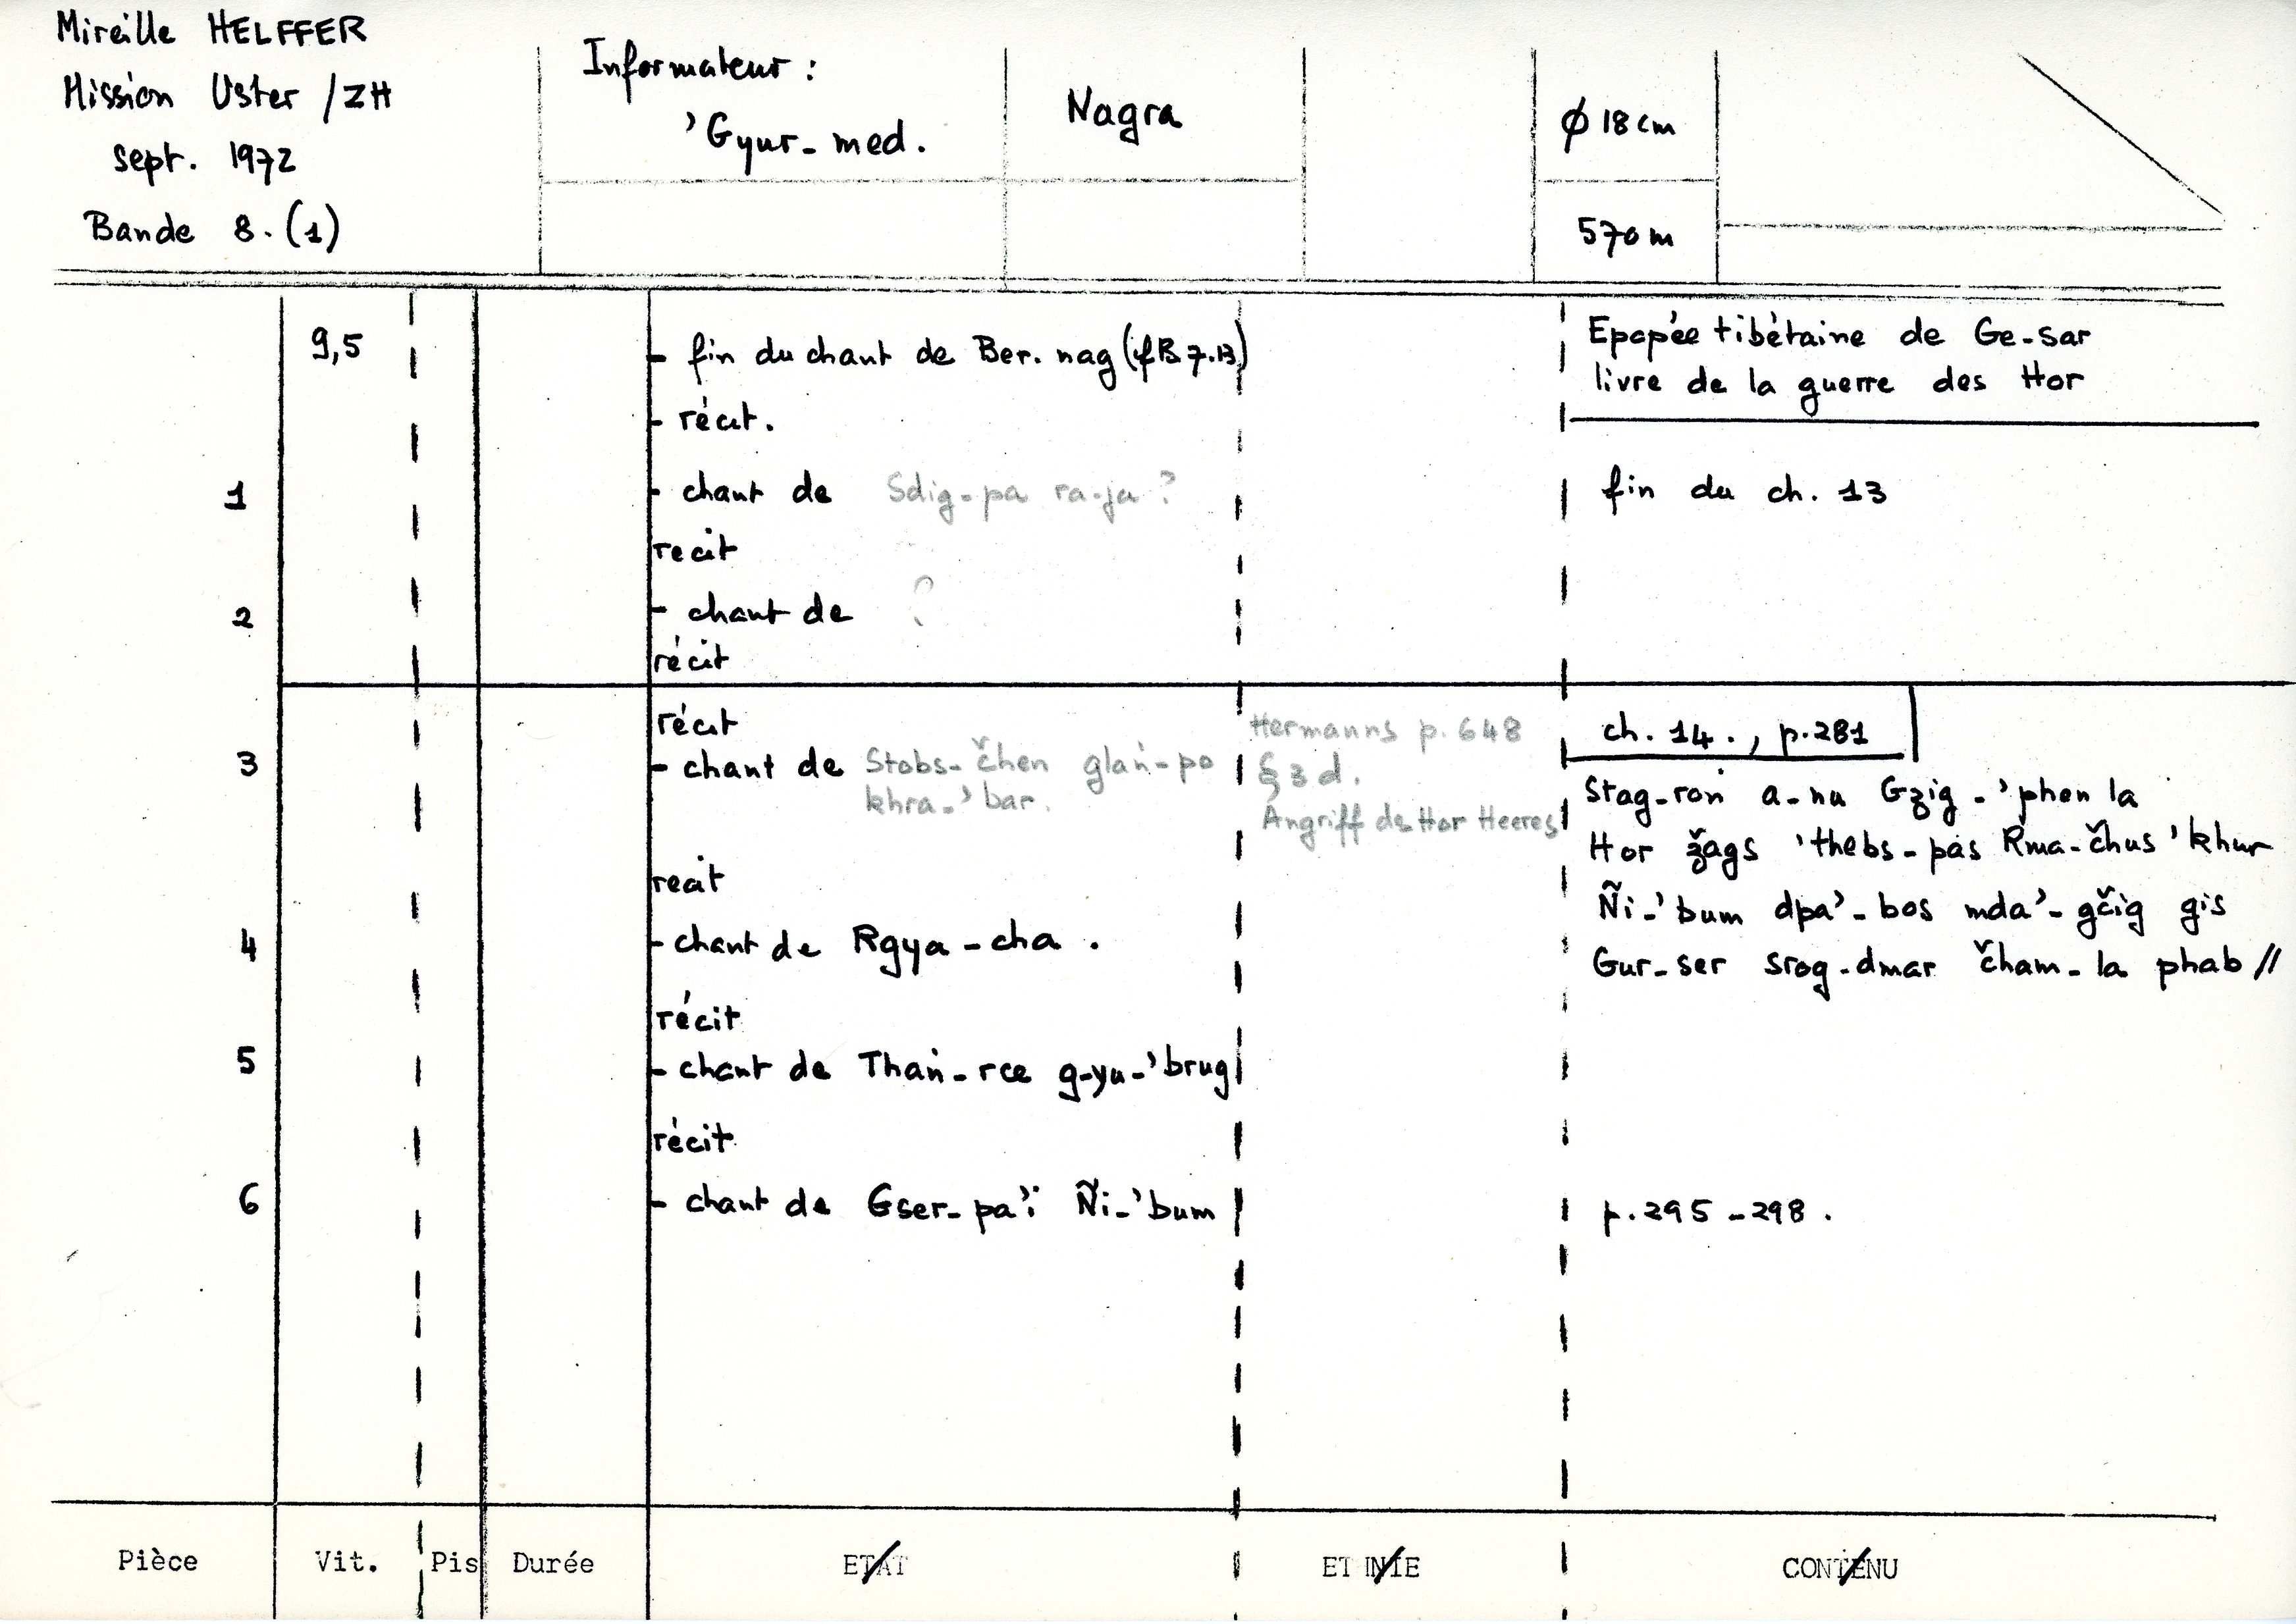 Mireille HELFFER
Mission Uster / ZH
sept. 1972
Bande 8. (1)
Informateur :
'Gyur-med.
Nagra
ϕ 18 cm
570 m
9,5
- fin du chant de Ber. nag (cf B. 7.13)
Epopée tibétaine de Ge-sar
livre de la guerre des Hor
- récit.
1
- chant de Sdig-pa ra-ja ?
fin du ch. 13
recit
2
- chant de ?
récit
récit
3
- chant de Stobs-čhen glaṅ-po
khra-'bar.
Hermanns p. 648
§ 3 d.
Angriff des Hor Heeres
ch. 14., p. 281
Stag-roṅ a-nu Gzig-'phen la
Hor žags 'thebs-pas Rma-čhus 'khur
Ñi-'bum dpa'-bos mda'-gčig gis
Gur-ser srog-dmar čham-la phab //
recit
4
- chant de Rgya-cha .
récit
5
- chant de Thaṅ-rce g-yu-'brug
récit
6
- chant de Gser-pa'i Ñi-'bum
p. 295-298 .
Pièce
Vit.
Pis
Durée
ETAT
ETHNIE
CONTENU